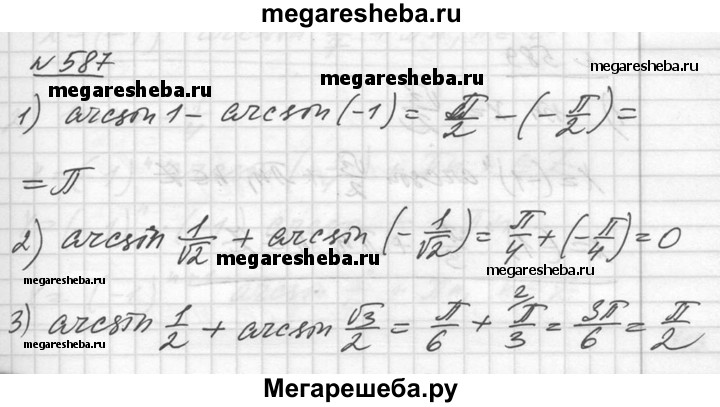 megaresheba.ru
№ 587
megaresheba.ru megaresheba.ru megaresheba.ru
1) arcsin 1 - arcsin (-1) = π/2 - (-π/2) =
= π
2) arcsin 1/√2 + arcsin (-1/√2) = π/4 + (-π/4) = 0
megaresheba.ru megaresheba.ru megaresheba.ru
3) arcsin 1/2 + arcsin √3/2 = π/6 + ²⁄π/3 = 3π/6 = π/2
megaresheba.ru megaresheba.ru megaresheba.ru
Мегарешеба.ру